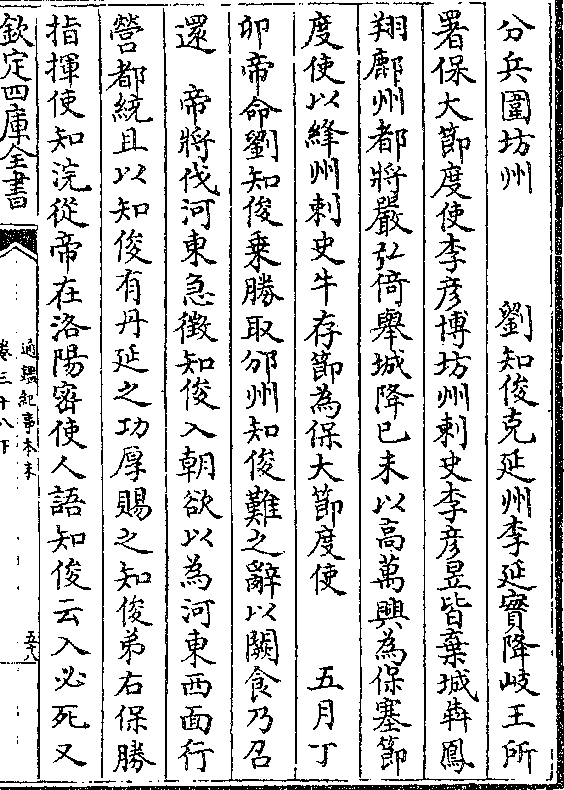 分兵圍坊州　　　劉知俊克延州李延實降岐王所
署保大節度使李彦博坊州刺史李彦昱皆棄城犇鳳
翔鄜州都將嚴弘倚舉城降已未以高萬興為保塞節
度使以絳州刺史牛存節為保大節度使　　五月丁
卯帝命劉知俊乗勝取邠州知俊難之辭以闕食乃召
還　帝將伐河東急徴知俊入朝欲以為河東西面行
營都統且以知俊有丹延之功厚賜之知俊弟右保勝
指揮使知浣從帝在洛陽密使人語知俊云入必死又
欽定四庫全書
通鑑紀事本末
卷三十八下
五八